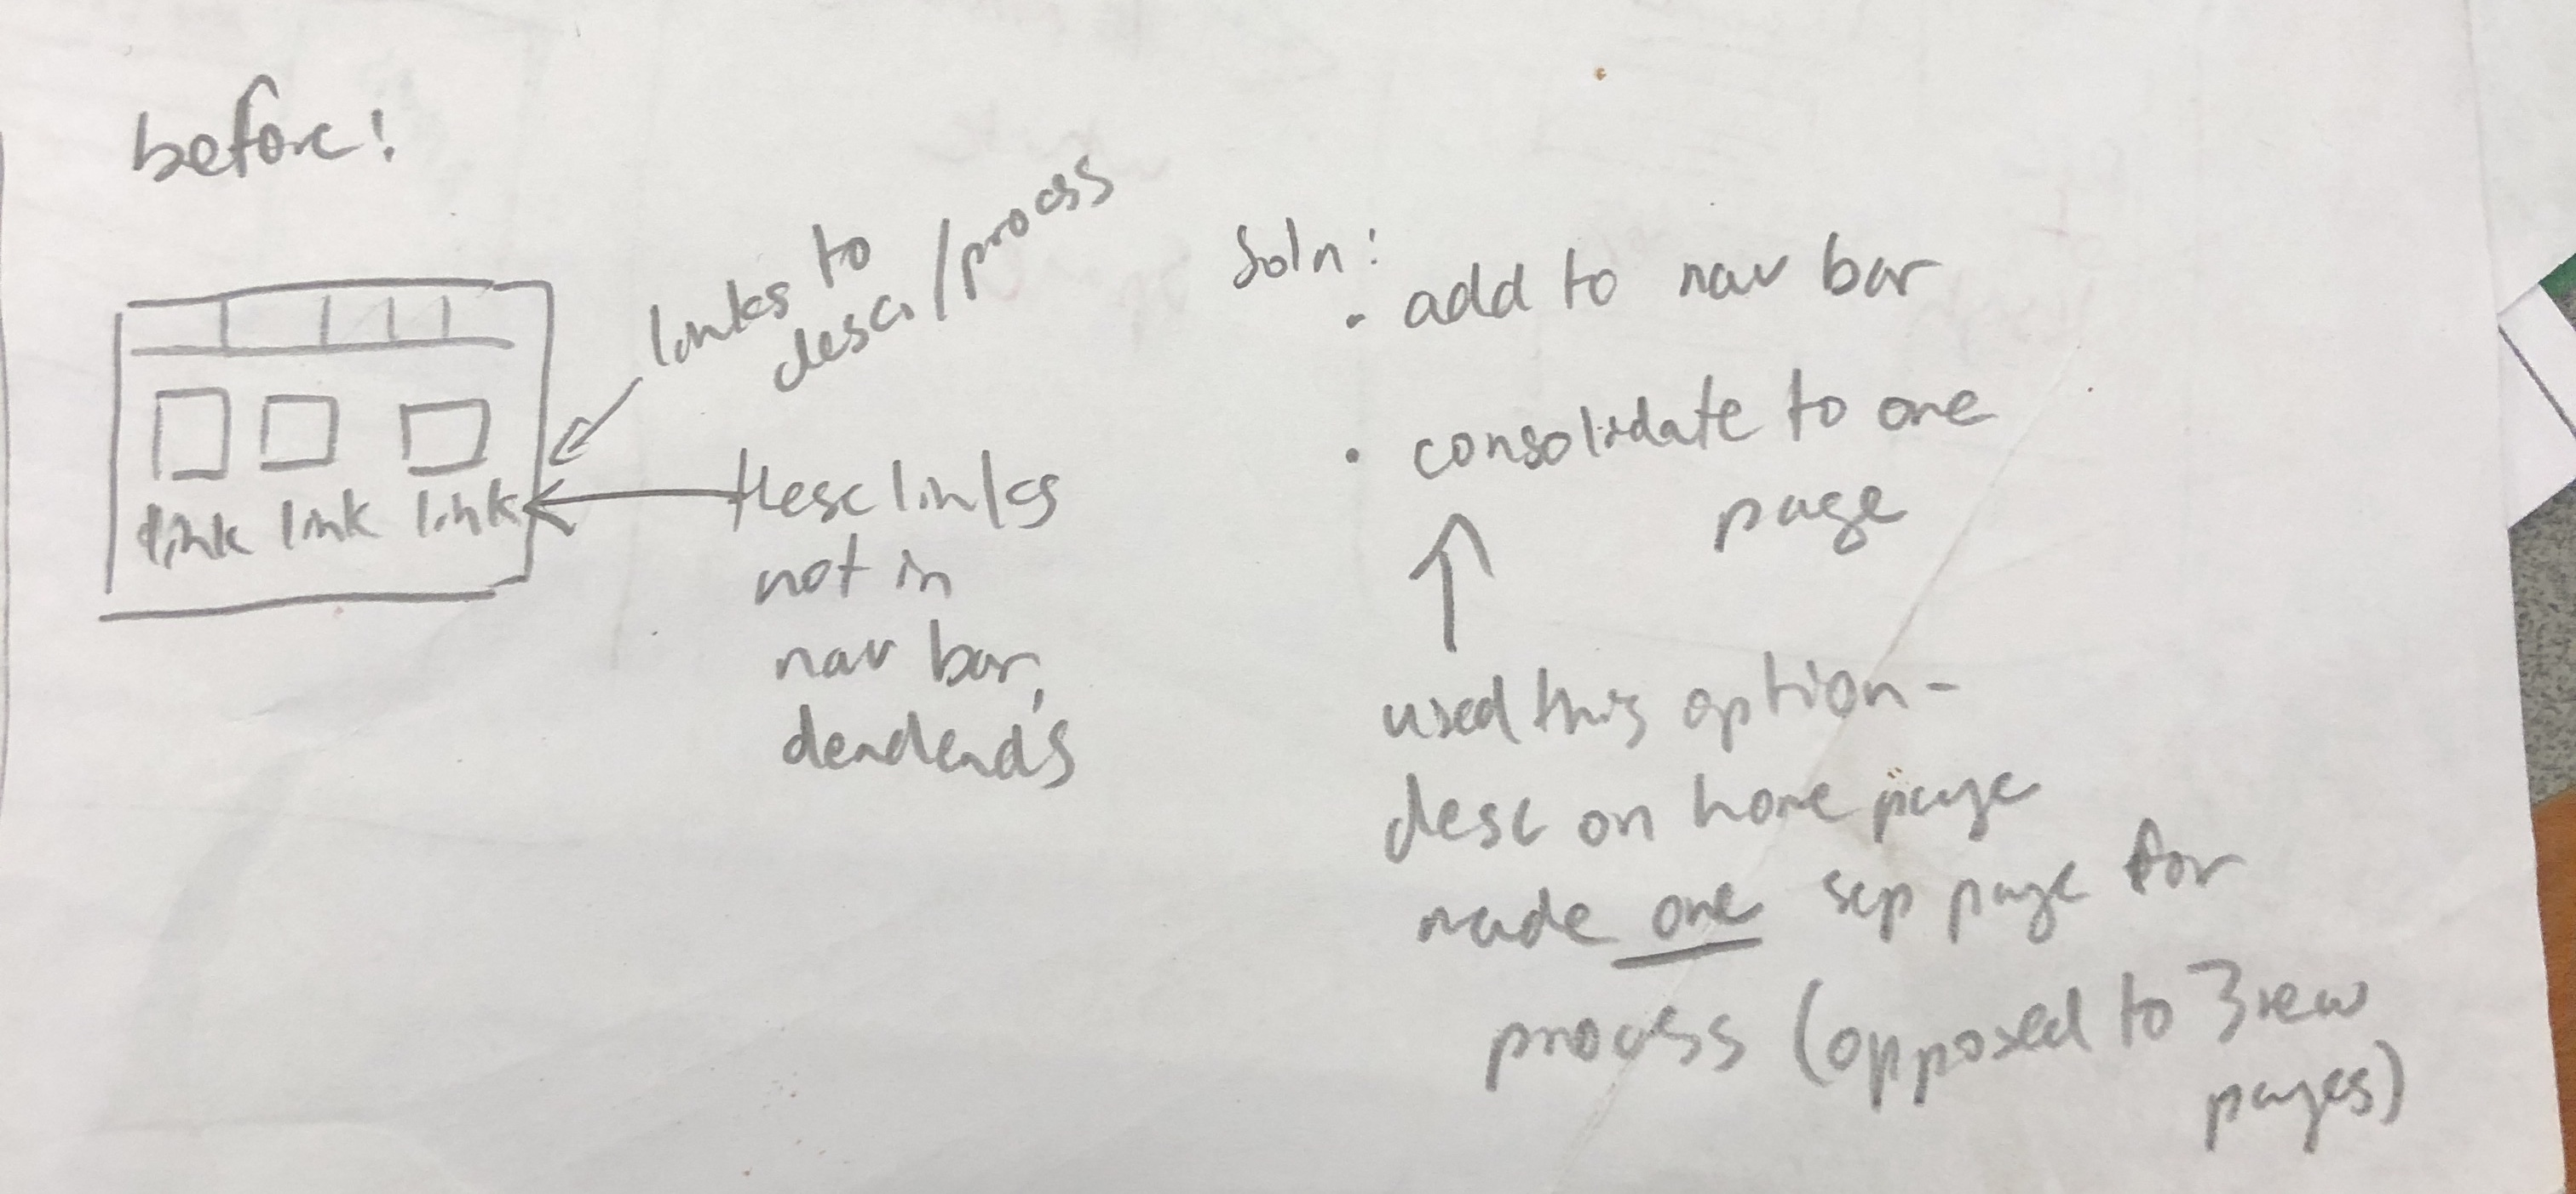 before!
links to
desc. / process
link link link
these links
not in
nav bar,
deadends
Soln:
• add to nav bar
• consolidate to one
page
used this option -
desc on home page
made one sep page for
process (opposed to 3 new
pages)